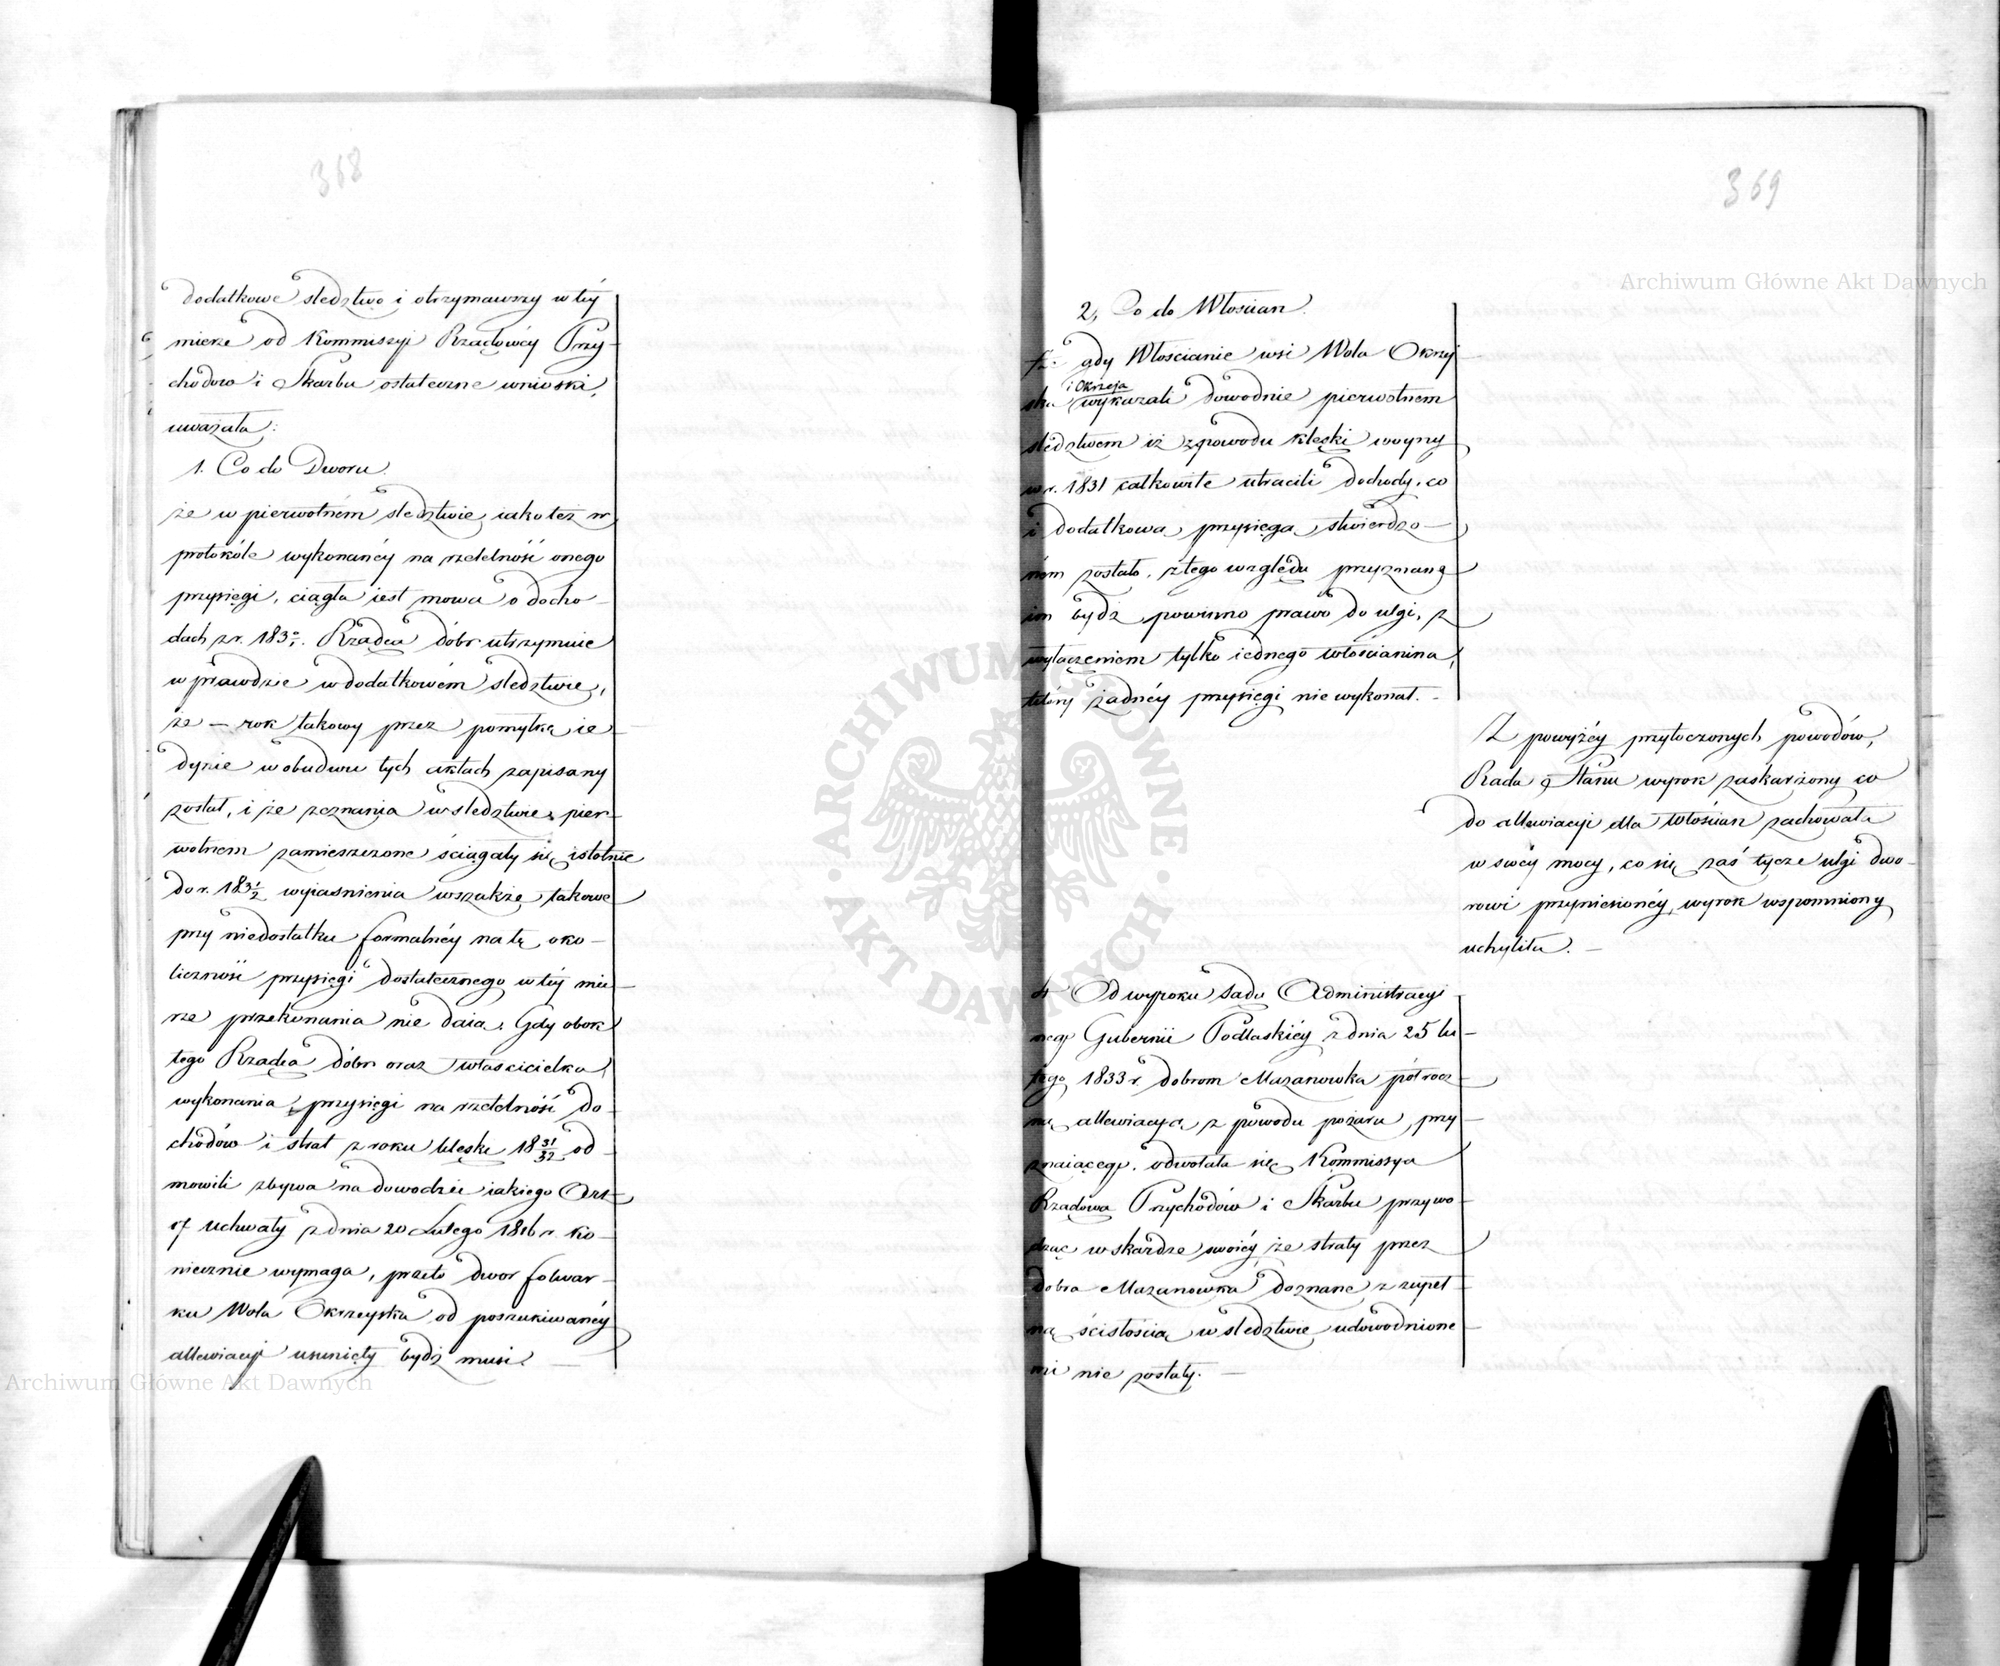 368
dodatkowe sledztwo i otrzymawszy w téy
mierze od Kommissyi Rządowéy Przy-
chodów i Skarbu ostateczne wnioski,
uważała:
1. Co do Dworu.
że w pierwotném śledztwie iako też w
protokóle wykonanéy na rzetelność onego
przysięgi, ciągła iest mowa o docho-
dach z r. 183 0/1. Rządca dóbr utrzymuie
wprawdzie w dodatkowém śledztwie,
że — rok takowy przez pomyłkę ie-
dynie w obudwu tych aktach zapisany
został, i że zeznania w śledztwie pier-
wotnem zamieszczone ściągały się istotnie
do r. 183 1/2 wyiaśnienia wszakże takowe
przy niedostatku formalnéy na tę oko-
liczność przysięgi dostatecznego w téy mie-
rze przekonania nie daią. Gdy obok
tego Rządca dóbr oraz właścicielka
wykonania przysięgi na rzetelność do-
chodów i strat z roku klęski 18 31/32 od-
mówili zbywa na dowodzie iakiego Art.
17 Uchwały z dnia 20 Lutego 1816 r. ko-
niecznie wymaga, przeto dwór folwar-
ku Wola Okrzeyska od poszukiwanéy
allewiacyi usunięty bydź musi. —
369
2, Co do Włościan.
gdy Włościanie wsi Wola Okrzey-
i Okrzeja
ska wykazali dowodnie pierwotnem
śledztwem iż z powodu klęski woyny
w r. 1831 całkowite utracili dochody, co
i dodatkową przysięgą stwierdzo-
ném zostało, z tego względu przyznane
im bydź powinno prawo do ulgi, z
wyłączeniem tylko iednego włościanina,
który żadnéy przysięgi nie wykonał. —
Z powyżéy przytoczonych powodów,
Rada Stanu wyrok zaskarżony co
do allewiacyi dla włościan zachowała
w swéy mocy, co się zaś tycze ulgi dwo-
rowi przyniesionéy, wyrok wspomniony
uchyliła. —
4 Od wyroku Sądu Administracyi-
nego Gubernii Podlaskiéy z dnia 25 lu-
tego 1833 r. dobrom Mazanowka półrocz-
ną allewiacyą z powodu pożaru, przy-
znaiącego, odwołała się Kommissya
Rządowa Przychodów i Skarbu przywo-
dząc w skardze swoiéy, że straty przez
dobra Mazanowka doznane z zupeł-
ną ścisłością w śledztwie udowodnione-
mi nie zostały. —
Archiwum Główne Akt Dawnych
Archiwum Główne Akt Dawnych
ARCHIWUM GŁÓWNE · AKT DAWNYCH ·